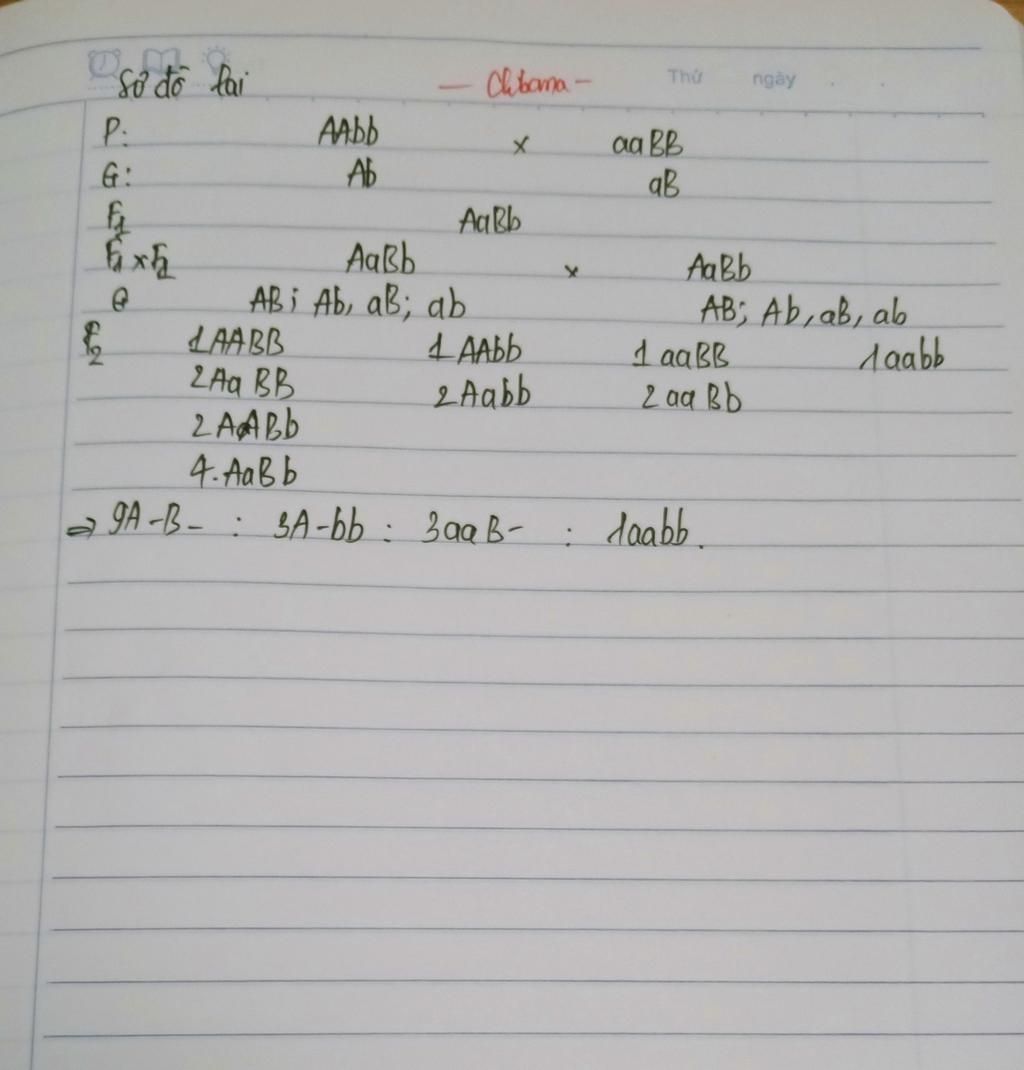 Sơ đồ lai
Thứ ngày
P: AAbb x aaBB
G: Ab aB
F1 AaBb
F1 x F1 AaBb x AaBb
G AB; Ab, aB; ab AB; Ab, aB, ab
F2 1AABB 1AAbb 1aaBB 1aabb
2AaBB 2Aabb 2aaBb
2AABb
4.AaBb
⇒ 9A-B- : 3A-bb : 3aaB- : 1aabb.